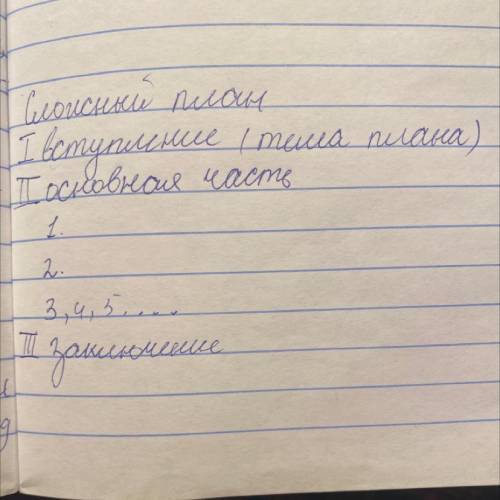 Сложный план
I вступление (тема плана)
II основная часть
1.
2.
3, 4, 5 . . . .
III заключение